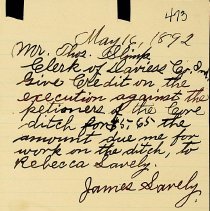 473
May 16, 1892
Mr. Thos.
Clerk of Daviess Co. Ind.
Give Credit on the
execution against the
petioners of the Cove
ditch for $5.65 the
amount due me for
work on the ditch, to
Rebecca Lavely.
James Lavely.